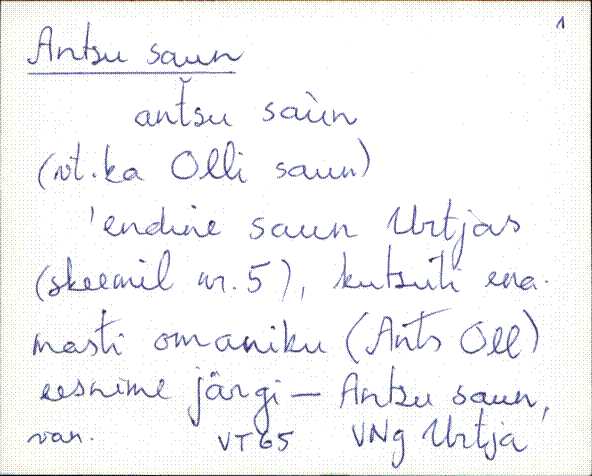 1
Antsu saun
ant̆su saùn
(vt. ka Olli saun)
'endine saun Urtjas
(skeemil nr. 5), kutsuti ena-
masti omaniku (Ants Oll)
eesnime järgi – Antsu saun,
van. VT65 VNg Urtja